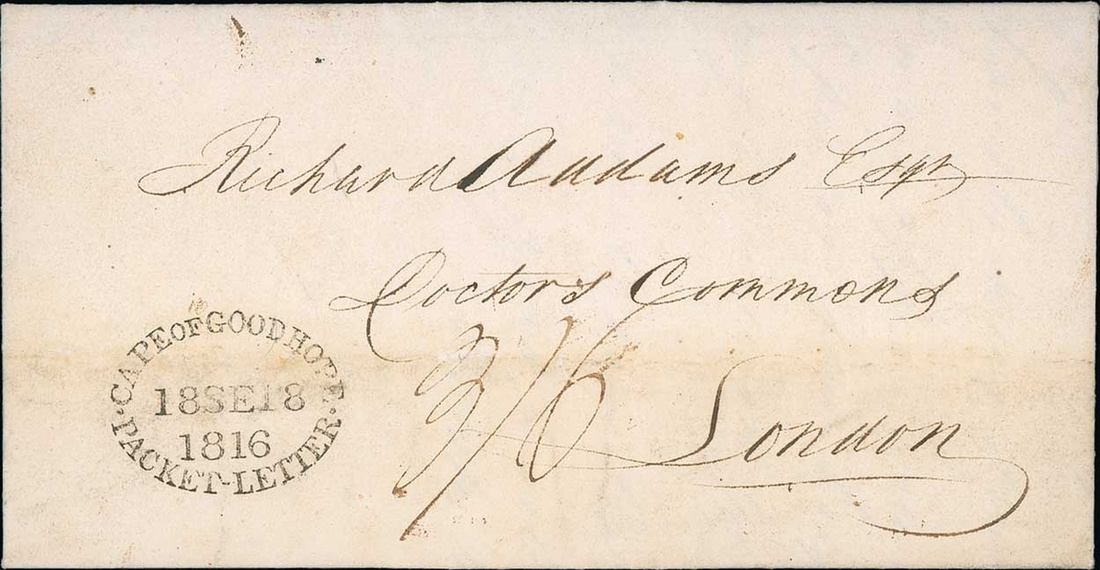 Richard Addams Esqr
Doctors Commons
3/6
London
CAPE OF GOOD HOPE
18SE18
1816
PACKET-LETTER